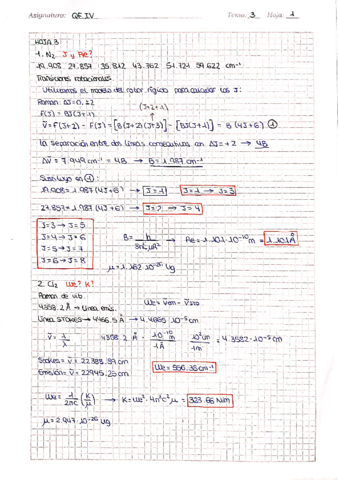 Asignatura: QF.IV Tema: 3 Hoja: 1
HOJA 3
1. N₂ J y Re?
19.908 27.857 35.812 43.762 51.721 59.622 cm⁻¹
Transiciones rotacionales
Utilizamos el modelo del rotor rígido para calcular las J:
Raman ΔJ=0,±2
(J+2+1)
F(J) = BJ(J+1)
ν̃ = F(J+2) - F(J) = [B(J+2)(J+3)] - [BJ(J+1)] = B(4J+6) ①
la separación entre dos líneas consecutivas con ΔJ=+2 → 4B
Δν̃ = 7.949 cm⁻¹ = 4B → B=1.987 cm⁻¹
Sustituyo en ①:
19.908=1.987(4J+6) → J=1 → J=1 → J=3
27.857=1.987(4J+6) → J=2 → J=2 → 4
J=3 → J=5
J=4 → J=6
J=5 → J=7
J=6 → J=8
B= h / 8π²cμR² → Re=1.101·10⁻¹⁰ m = 1.101Å
μ=1.162·10⁻²⁶ kg
2. Cl₂ We? K?
Raman de vib.
We = ν̃em - ν̃sto
4358.2 Å → línea emis.
línea STOKES → 4466.5 Å → 4.4665·10⁻⁵ cm
ν̃ = 1/λ 4358.2 Å · 10⁻¹⁰ m / 1Å · 10² cm / 1m = 4.3582·10⁻⁵ cm
Stokes = ν̃ = 22388.89 cm
Emisión = ν̃ = 22945.25 cm
We = 556.36 cm⁻¹
We = 1/2πc (K/μ) → K=We²·4π²c²μ = 323.66 N/m
μ = 2.947·10⁻²⁶ kg